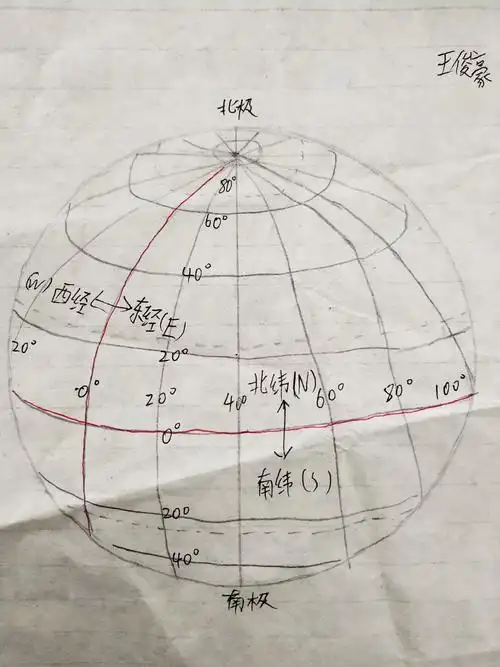 王俊豪
北极
80°
60°
40°
(W) 西经 东经(E)
20°
20°
北纬(N)
0° 20° 40° 60° 80° 100°
0°
南纬(S)
20°
40°
南极